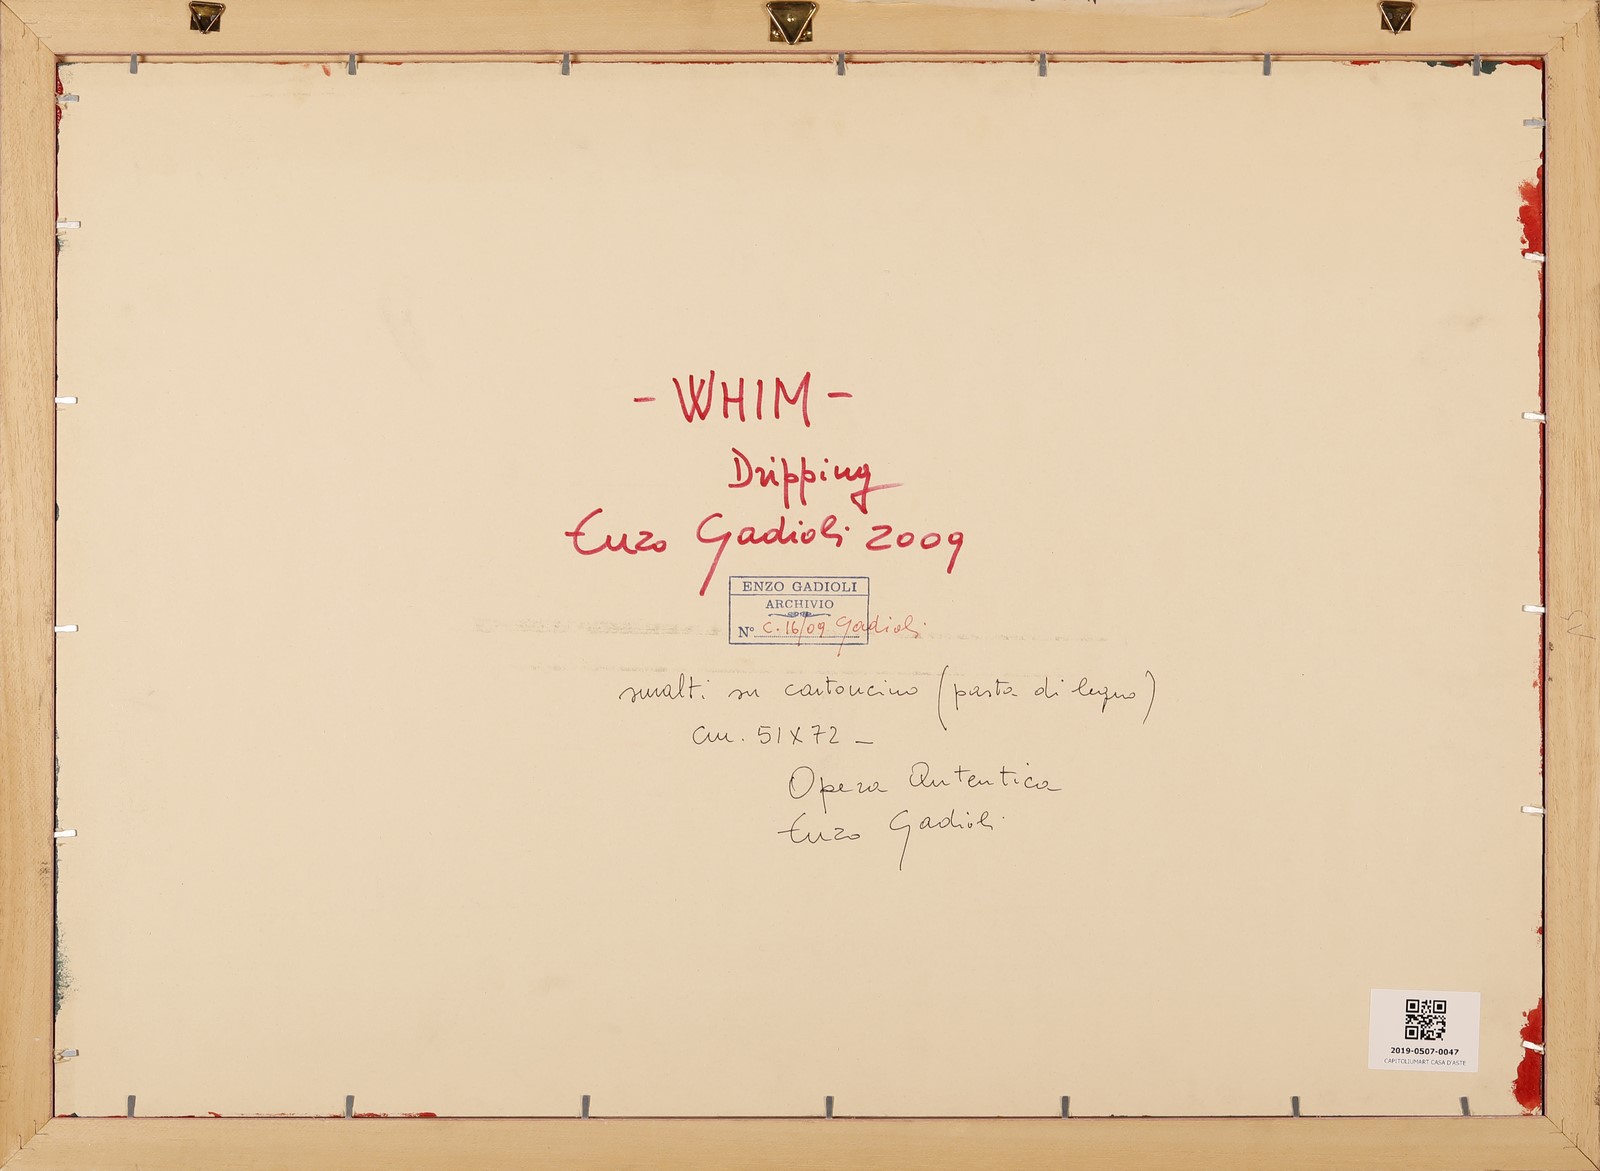 - WHIM -
Dripping
Enzo Gadioli 2009
ENZO GADIOLI
ARCHIVIO
N° C. 16/09 Gadioli
smalti su cartoncino (pasta di legno)
cm. 51X72 -
Opera Autentica
Enzo Gadioli
2019-0507-0047
CAPITOLIUMART CASA D'ASTE